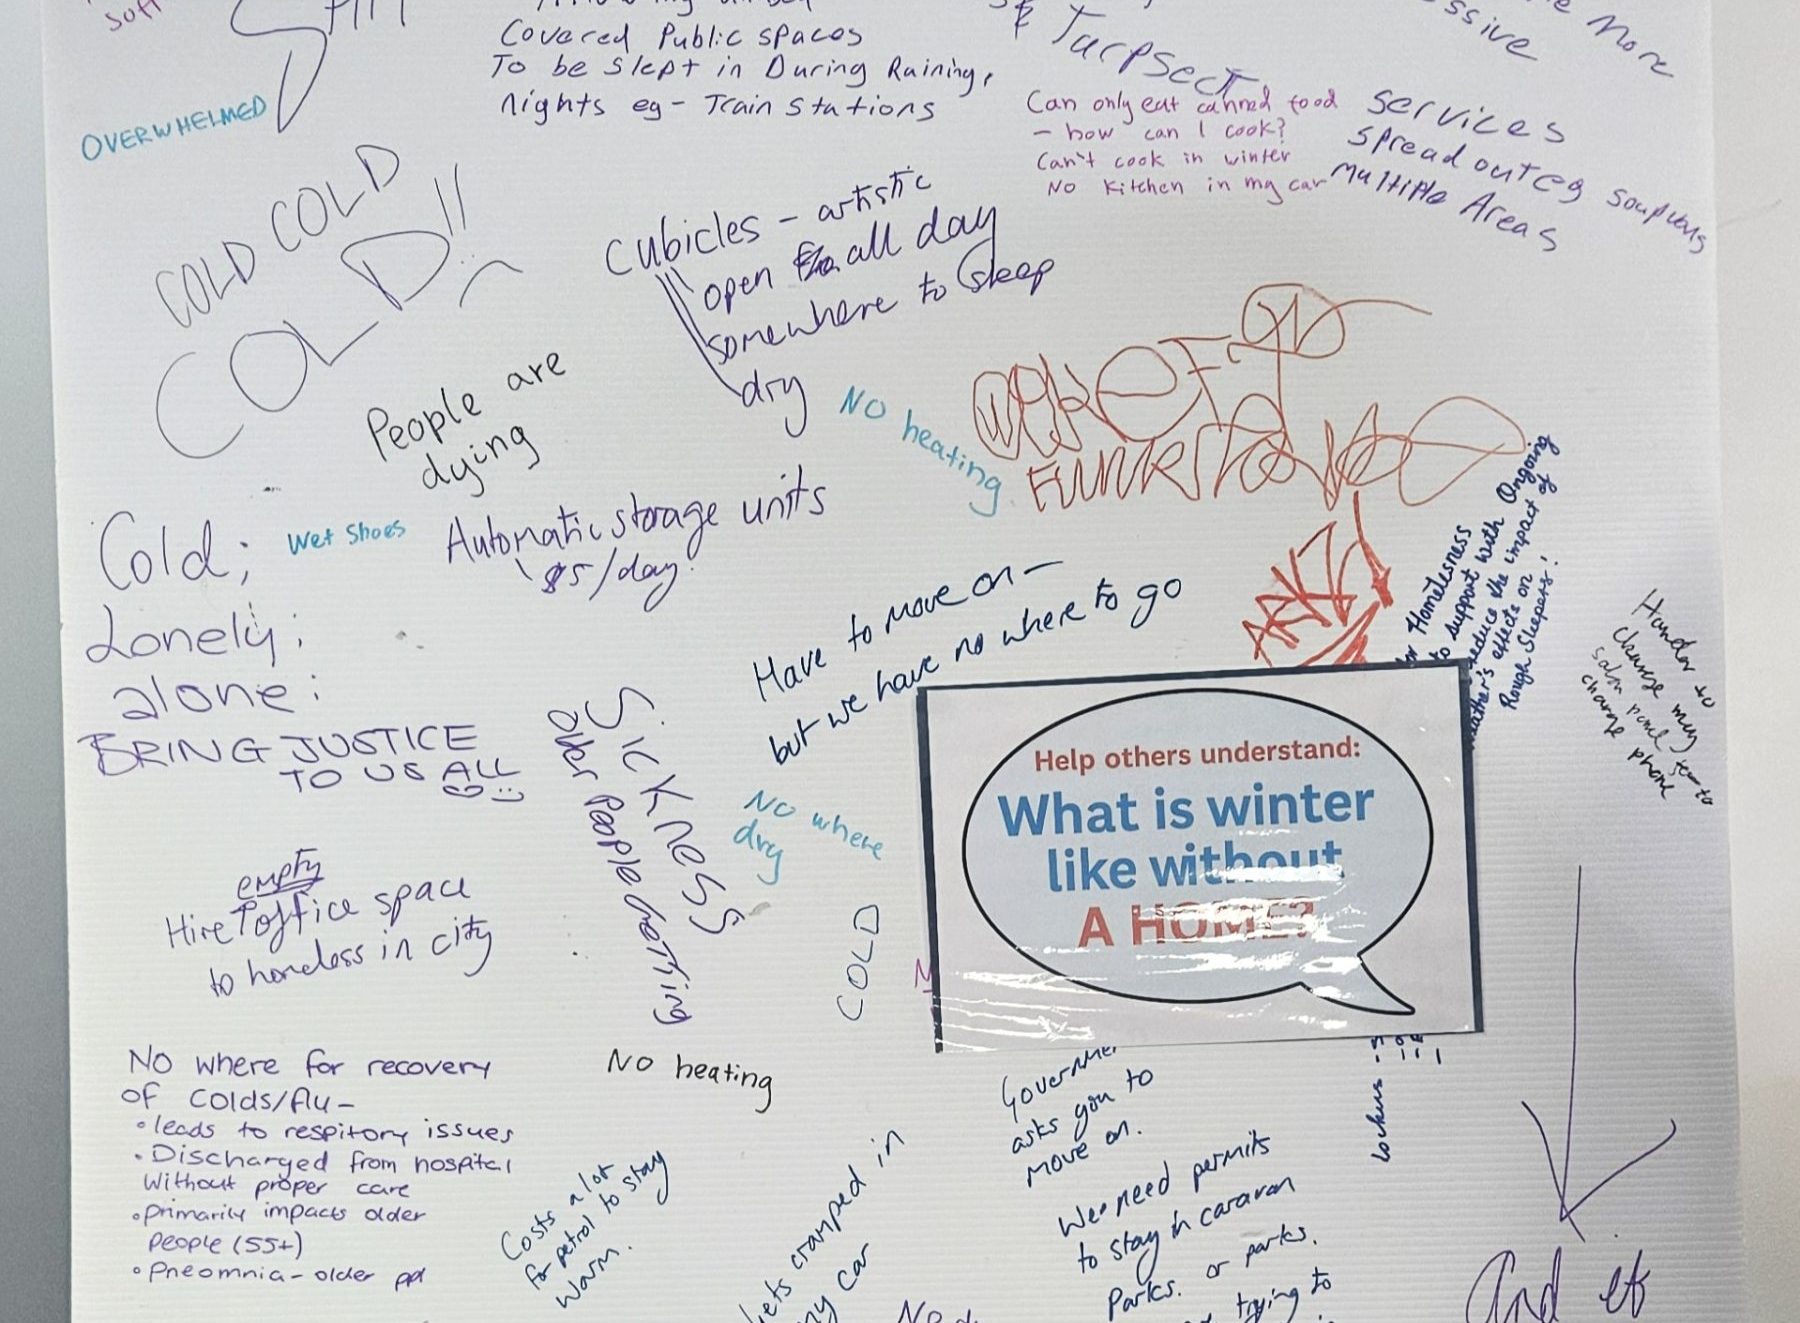 OVERWHELMED
Covered Public spaces
To be slept in During Raining,
nights eg - Train Stations
Turpsect
Can only eat canned food
- how can I cook?
Can't cook in winter
No Kitchen in my car
More
Services
Spread out eg
Multiple Areas
COLD COLD
COLD!!
Cubicles - artistic
open all day
somewhere to sleep
dry
People are
dying
No heating
Cold;
Lonely;
alone;
BRING JUSTICE
TO US ALL
Wet Shoes
Automatic storage units
$5/day.
Have to move on -
but we have no where to go
Homelesness
to support with Ongoing
reduce the impact of
effects on
Rough Sleepers!
Harder to
change my
phone
Sickness
Older People Getting
No where
dry
Help others understand:
What is winter
like without
A HOME?
empty
Hire office space
to homeless in city
COLD
No where for recovery
of colds/flu -
• leads to respitory issues
• Discharged from hospital
without proper care
• primarily impacts older
people (55+)
• Pneomnia - older ppl
No heating
Costs a lot
for petrol to stay
warm.
cramped in
my car
asks you to
move on.
We need permits
to stay in caravan
Parks. or parks.
trying to
Lockers -
And